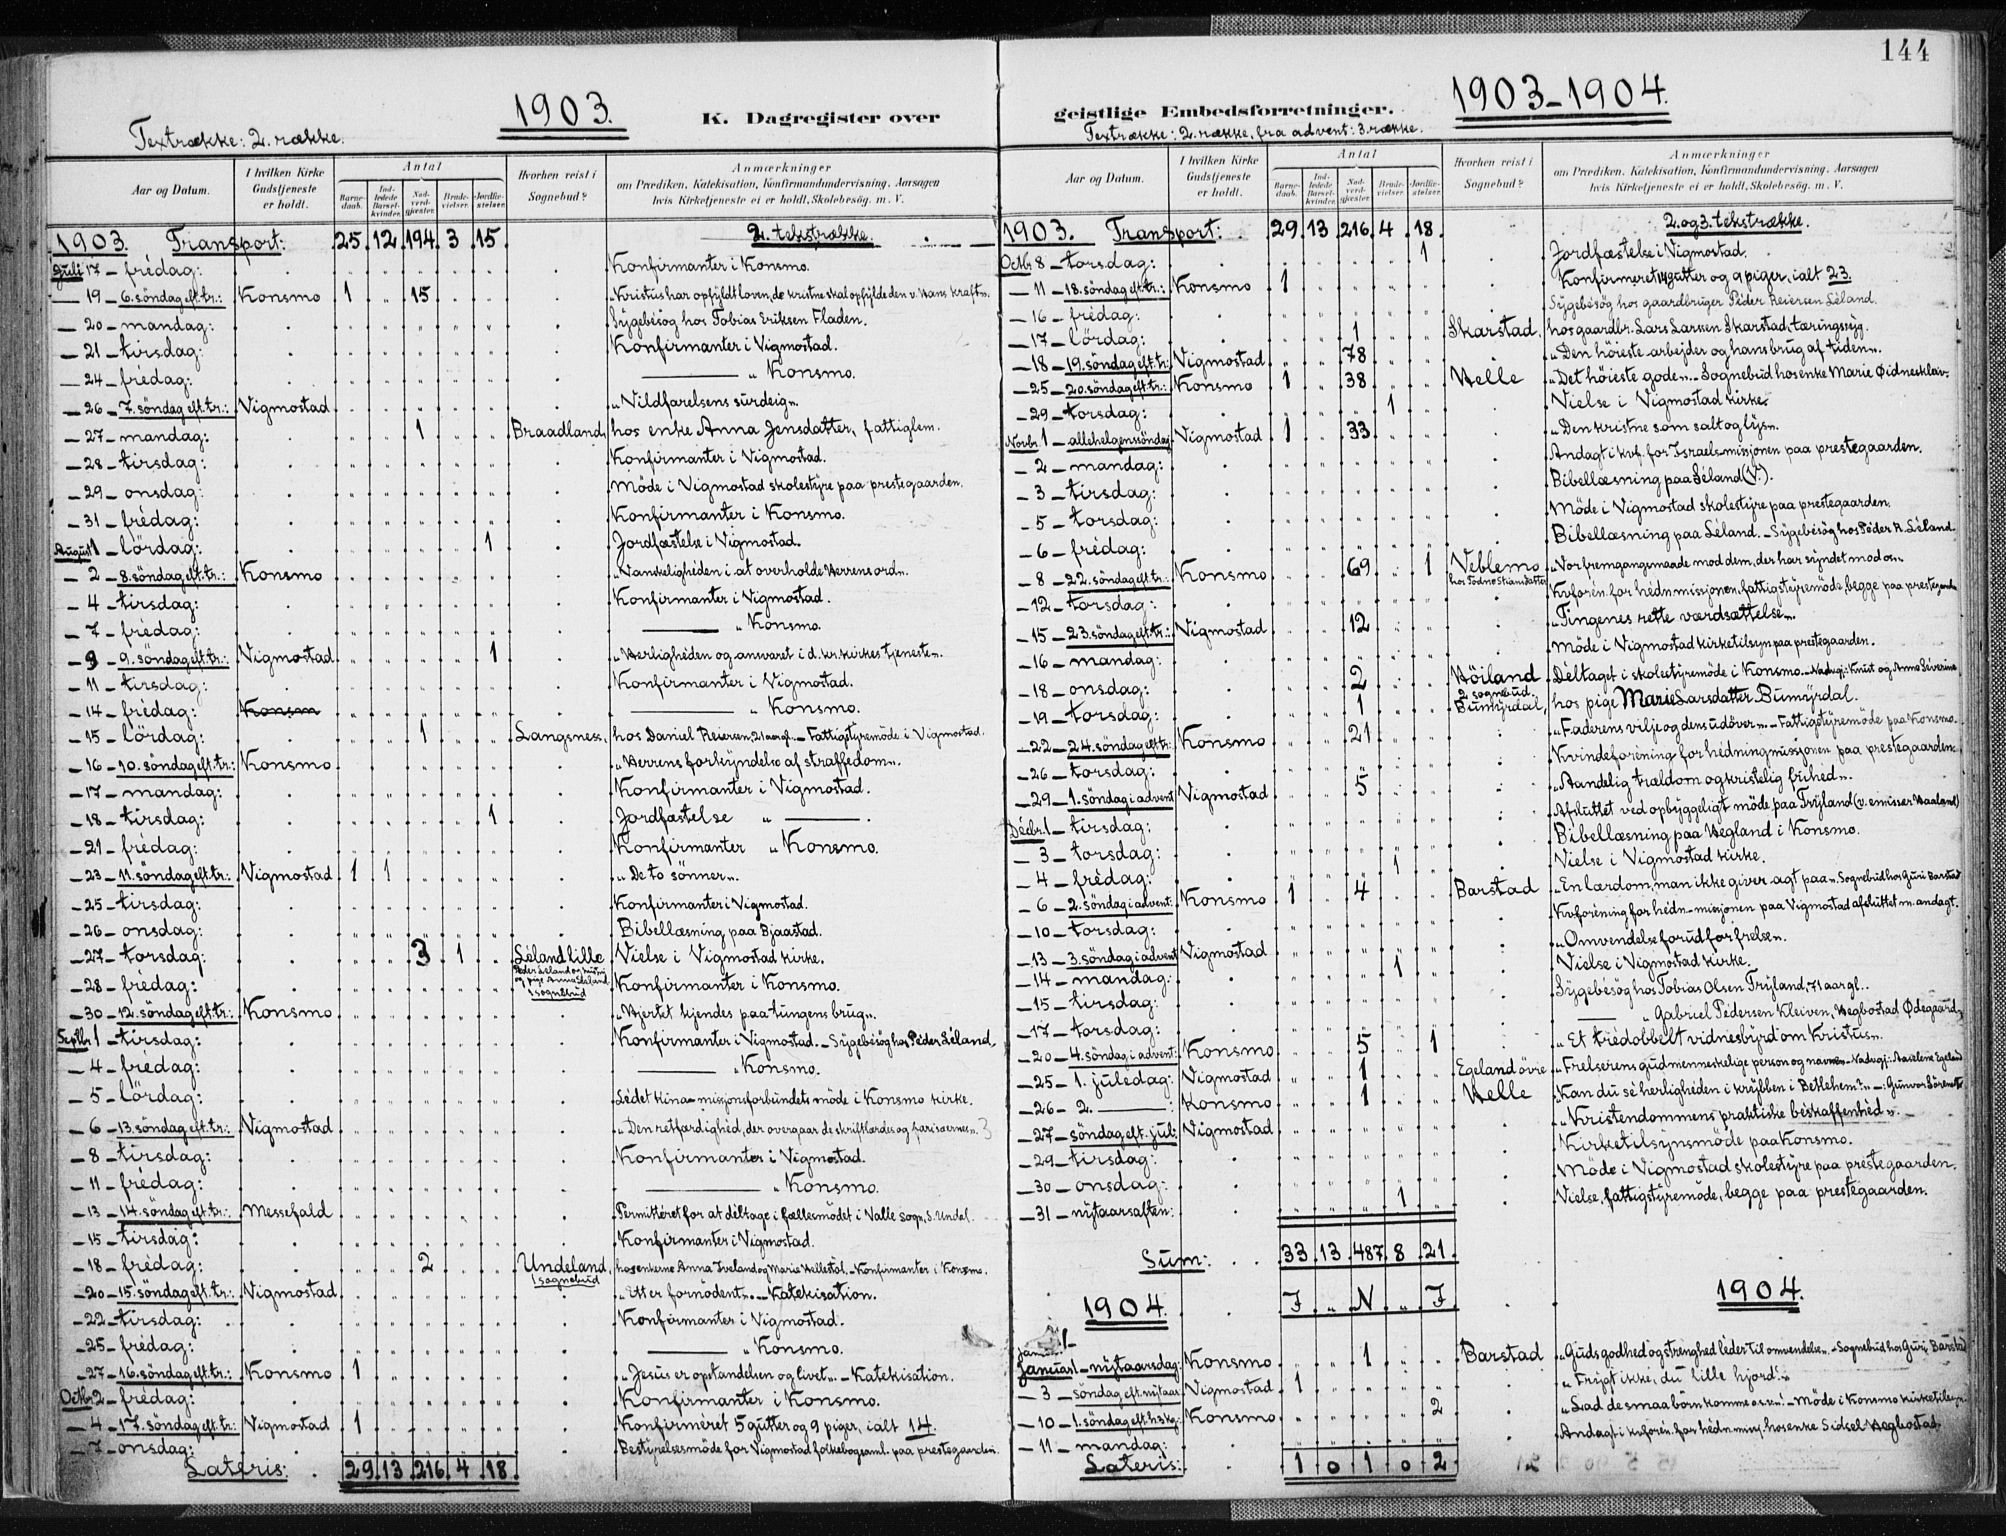 144
1903.
K. Dagregister over
Textrække: 2. række.
Aar og Datum.
I hvilken Kirke Gudstjeneste er holdt.
Antal
Barnedaab.
Indledede Barselkvinder.
Nadverdgjæster.
Brudevielser.
Jordfæstelser.
Hvorhen reist i Sognebud?
Anmærkninger
om Prædiken, Katekisation, Konfirmandundervisning, Aarsagen
hvis Kirketjeneste ei er holdt, Skolebesøg. m. V.
1903. Transport: 25 12 194 3 15 2. tekstrække.
Juli 17 - fredag: Konfirmanter i Konsmo.
- 19 - 6. söndag eft. tr.: Konsmo 1 15 "Kristus har opfyldt loven, de kristne skal opfylde den v. Hans kraft".
- 20 - mandag: Sygebesøg hos Tobias Eriksen Fladen.
- 21 - tirsdag: Konfirmanter i Vigmostad.
- 24 - fredag: — " Konsmo.
- 26 - 7. söndag eft. tr.: Vigmostad "Vildfarelsens surdeig".
- 27 - mandag: 1 Braadland, hos enke Anna Jensdatter, fattiglem.
- 28 - tirsdag: Konfirmanter i Vigmostad.
- 29 - onsdag: Möde i Vigmostad skolestyre paa prestegaarden.
- 31 - fredag: Konfirmanter i Konsmo.
August 1 - lördag: 1 Jordfæstelse i Vigmostad.
- 2 - 8. söndag eft. tr.: Konsmo "Vanskeligheden i at overholde Herrens ord".
- 4 - tirsdag: Konfirmanter i Vigmostad.
- 7 - fredag: — " Konsmo.
- 9 - 9. söndag eft. tr.: Vigmostad 1 "Herligheden og ansvaret i d. kr. kirkes tjeneste".
- 11 - tirsdag: Konfirmanter i Vigmostad.
- 14 - fredag: Konsm — " Konsmo.
- 15 - lördag: 1 Langsness, hos Daniel Reiersen, 21 aar gl. - Fattigstyremöde i Vigmostad.
- 16 - 10. söndag eft. tr.: Konsmo "Herrens forkyndelse af straffedom".
- 17 - mandag: Konfirmanter i Vigmostad.
- 18 - tirsdag: 1 Jordfæstelse " —.
- 21 - fredag: Konfirmanter " Konsmo.
- 23 - 11. söndag eft. tr.: Vigmostad 1 1 "De to sönner".
- 25 - tirsdag: Konfirmanter i Vigmostad.
- 26 - onsdag: Bibellæsning paa Bjaastad.
- 27 - torsdag: 3 1 Léland lille Vielse i Vigmostad kirke.
Peder Léland og hustru og pige Anna Léland 1 sognebud
- 28 - fredag: Konfirmanter i Konsmo.
- 30 - 12. söndag eft. tr.: Konsmo "Hjertet kjendes paa tungens brug".
Septbr 1 - tirsdag: Konfirmanter i Vigmostad. - Sygebesøg hos Peder Léland.
- 4 - fredag: — " Konsmo.
- 5 - lördag: Ledet kina-missjonsforbundets möde i Konsmo kirke.
- 6 - 13. söndag eft. tr.: Vigmostad "Den retfærdighed, der overgaar de skriftlærdes og farisæernes".
- 8 - tirsdag: Konfirmanter i Vigmostad.
- 11 - fredag: — " Konsmo.
- 13 - 14. söndag eft. tr.: Messefald Permitteret for at deltage i fællesmödet i Valle sogn, S. Undal.
- 15 - tirsdag: Konfirmanter i Vigmostad.
- 18 - fredag: 2 Undeland, 1 sognebud hos enkerne Anna Ireland og Marie Hellestøl. - Konfirmanter i Konsmo.
- 20 - 15. söndag eft. tr.: Vigmostad "Et er fornödent". - Katekisation.
- 22 - tirsdag: Konfirmanter i Vigmostad.
- 25 - fredag: — " Konsmo.
- 27 - 16. söndag eft. tr.: Konsmo 1 "Jesus er opstandelsen og livet". - Katekisation.
Octbr 2 - fredag: Konfirmanter i Konsmo.
- 4 - 17. söndag eft. tr.: Vigmostad 1 Konfirmeret 5 gutter og 9 piger, ialt 14.
- 7 - onsdag: Bestyrelsesmöde for Vigmostad folkebogsaml. paa prestegaarden.
Lateris: 29 13 216 4 18
geistlige Embedsforretninger.
1903-1904.
Textrække: 2. række, fra advent: 3. række.
Aar og Datum.
I hvilken Kirke Gudstjeneste er holdt.
Antal
Barnedaab.
Indledede Barselkvinder.
Nadverdgjæster.
Brudevielser.
Jordfæstelser.
Hvorhen reist i Sognebud?
Anmærkninger
om Prædiken, Katekisation, Konfirmandundervisning, Aarsagen
hvis Kirketjeneste ei er holdt, Skolebesøg. m. V.
1903. Transport: 29 13 216 4 18 2. og 3. tekstrække.
Octbr 8 - torsdag: 1 Jordfæstelse i Vigmostad.
- 11 - 18. söndag eft. tr.: Konsmo 1 Konfirmeret 14 gutter og 9 piger, ialt 23.
- 16 - fredag: Sygebesøg hos gaardbruger Peder Reiersen Léland.
- 17 - lördag: 1 Skarstad, hos gaardbr. Lars Larssen Skarstad, tæringssyg.
- 18 - 19. söndag eft. tr.: Vigmostad 78 "Den höieste arbejder og hans brug af tiden".
- 25 - 20. söndag eft. tr.: Konsmo 1 38 Helle "Det höieste gode". - Sognebud hos enke Marie Øidneskleiv.
- 29 - torsdag: 1 Vielse i Vigmostad kirke.
Novbr. 1 - allehelgenssöndag Vigmostad 1 33 "Den kristne som salt og lys".
- 2 - mandag: Andagt i kvf. for Israels-missjonen paa prestegaarden.
- 3 - tirsdag: Bibellæsning paa Léland (V.).
- 5 - torsdag: Möde i Vigmostad skolestyre paa prestegaarden.
- 6 - fredag: Bibellæsning paa Léland. - Sygebesøg hos Peder R. Léland.
- 8 - 22. söndag eft. tr.: Konsmo 69 1 Veblemo "Vor fremgangsmaade mod dem, der har syndet mod os".
- 12 - torsdag: Kvforen. for hednmissjonen, fattigstyremöde, begge paa prestegaarden
- 15 - 23. söndag eft. tr.: Vigmostad 12 "Tingenes rette værdsættelse".
- 16 - mandag: Möde i Vigmostad kirketilsyn paa prestegaarden.
- 18 - onsdag: 2 Höiland 2 sognebud. Deltaget i skolestyremöde i Konsmo. - Nadvgj: Knut og Anne Severine
- 19 - torsdag: 1 Bumyrdal, hos pige Marie Larsdatter Bumyrdal.
- 22 - 24. söndag eft. tr.: Konsmo 21 "Faderens vilje og dens udöver". - Fattigstyremöde paa Konsmo.
- 26 - torsdag: Kvindeforening for hedningmissjonen paa prestegaarden.
- 29 - 1. söndag i advent Vigmostad 5 "Aandelig trældom og kristelig frihed".
Decbr. 1 - tirsdag: Afsluttet ved opbyggeligt möde paa Tryland (v. emissær Haaland)
- 3 - torsdag: Bibellæsning paa Hegland i Konsmo.
- 4 - fredag: 1 Vielse i Vigmostad kirke.
- 6 - 2. söndag i advent: Konsmo 1 4 Barstad "En lærdom, man ikke giver agt paa". Sognebud hos Guri Barstad
- 10 - torsdag: Kvforening for hedn-missjonen paa Vigmostad afsluttet m. andagt.
- 13 - 3. söndag i advent Vigmostad "Omvendelse forud for frelse".
- 14 - mandag: 1 Vielse i Vigmostad kirke.
- 15 - tirsdag: Sygebesøg hos Tobias Olsen Tryland, 71 aar gl.
- 17 - torsdag: — " Gabriel Pedersen Kleiven, Hegbostad Ødegaard.
- 20 - 4. söndag i advent: Konsmo 5 1 "Et tredobbelt vidnesbyrd om Kristus".
- 25 - 1. juledag: Vigmostad 1 Egeland övre "Frelserens gudmenneskelige person og navne". - Nadvgj: Aaselene Egeland
- 26 - 2. —: Konsmo 1 Helle "Kan du se herligheden i krybben i Betlehem?" - Gunvor Sörensd
- 27 - söndag eft. jul: Vigmostad "Kristendommens praktiske beskaffenhed".
- 29 - tirsdag: Kirketilsynsmöde paa Konsmo.
- 30 - onsdag: Möde i Vigmostad skolestyre paa prestegaarden.
- 31 - nytaarsaften: 1 Vielse, fattigstyremöde, begge paa prestegaarden.
Sum: 33 13 487 8 21
1904. 1904.
Januar 1 - nytaarsdag: Konsmo 1 Barstad "Guds godhed og strenghed leder til omvendelse". - Sognebud hos Guri Barstad
- 3 - söndag eft. nytaar Vigmostad 1 "Frygt ikke, du lille hjord".
- 10 - 1. söndag eft. h3kg: Konsmo 2 "Lad de smaa börn komme osv." - Möde i Konsmo kirketilsyn.
- 11 - mandag: Andagt i kvforen. for hedn.misj. hos enke Sidsel Hegbostad.
Lateris: 1 0 1 0 2